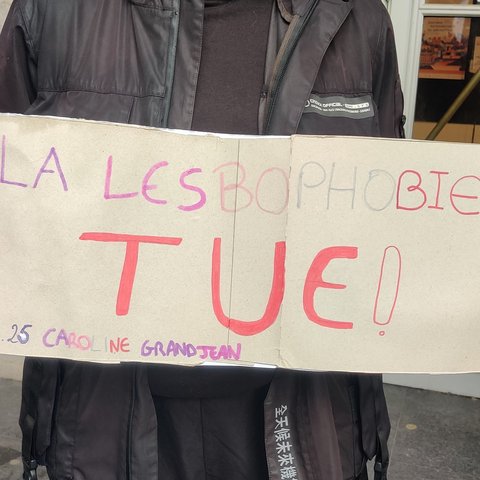 LA LESBOPHOBIE
TUE!
.25 CAROLINE GRANDJEAN
全天候未來機